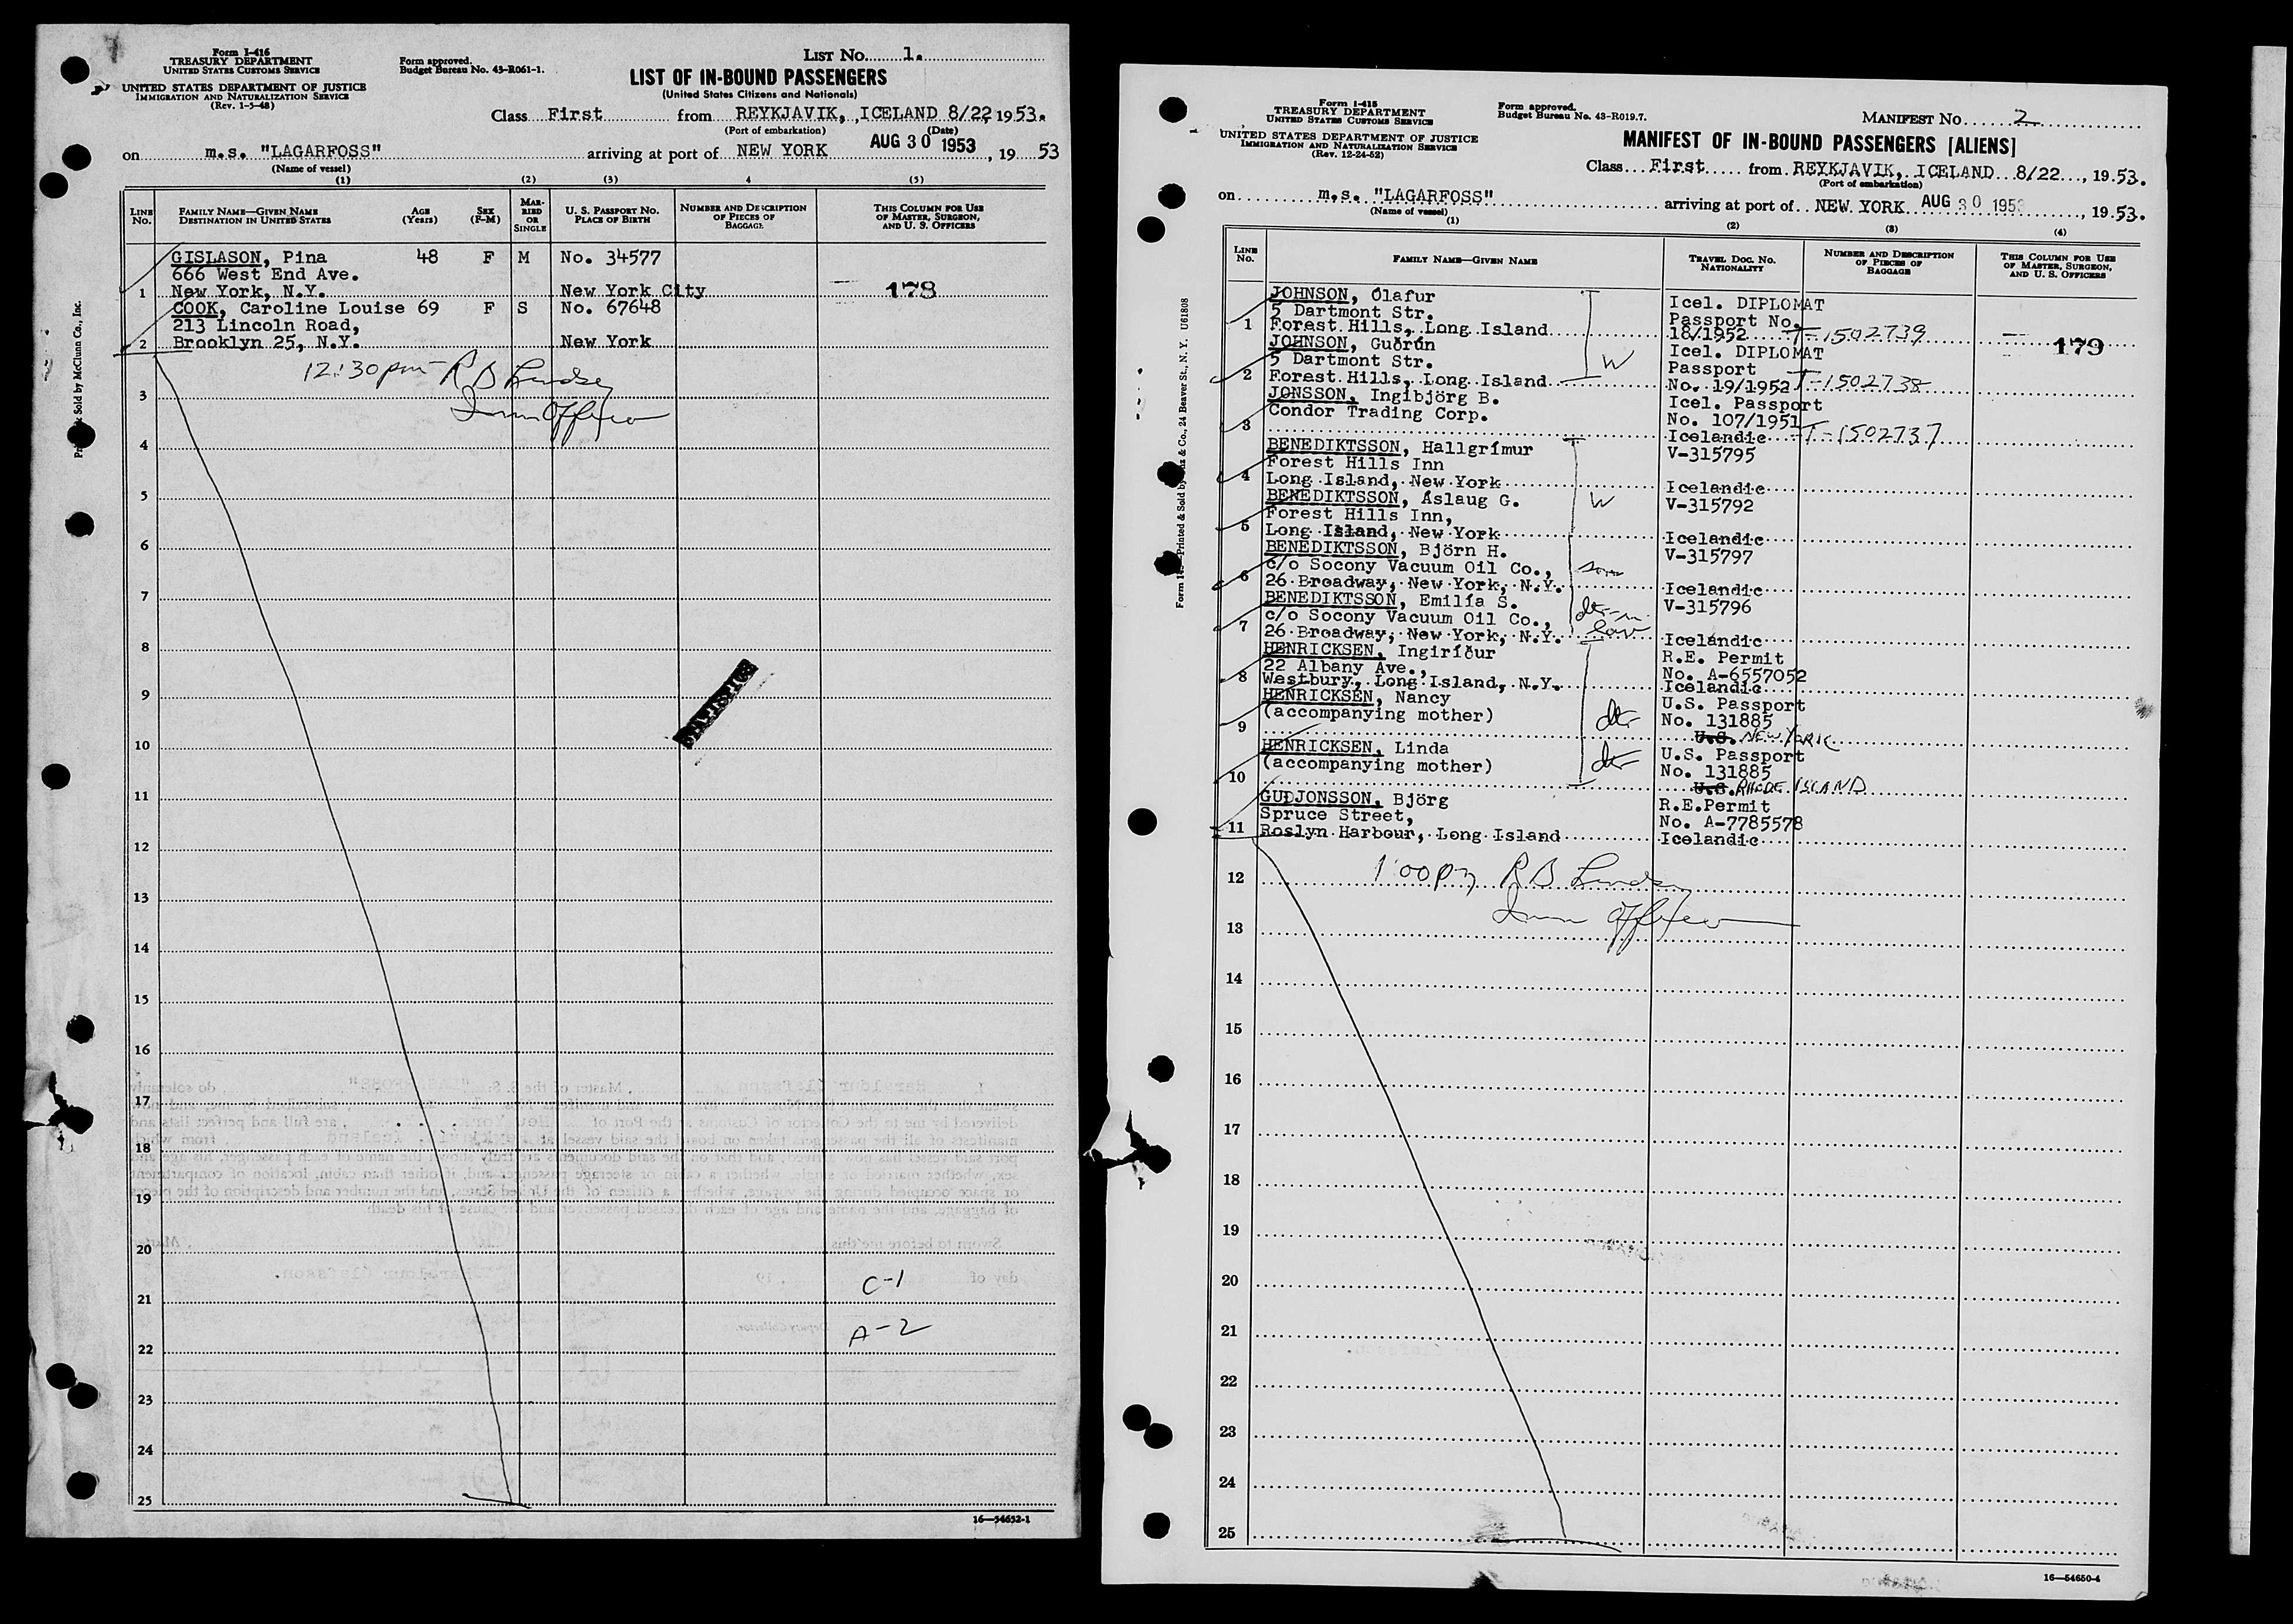 Form I-416
TREASURY DEPARTMENT
UNITED STATES CUSTOMS SERVICE
UNITED STATES DEPARTMENT OF JUSTICE
IMMIGRATION AND NATURALIZATION SERVICE
(Rev. 1-5-48)
Form approved.
Budget Bureau No. 43-R061-1.
LIST No. 1.
LIST OF IN-BOUND PASSENGERS
(United States Citizens and Nationals)
Class First from REYKJAVIK, ICELAND 8/22 1953.
(Port of embarkation) (Date)
on m.s. "LAGARFOSS" arriving at port of NEW YORK AUG 30 1953, 19 53
(Name of vessel)
(1) (2) (3) 4 (5)
LINE No.
FAMILY NAME—GIVEN NAME
DESTINATION IN UNITED STATES
AGE (Years)
SEX (F-M)
MARRIED OR SINGLE
U. S. PASSPORT NO.
PLACE OF BIRTH
NUMBER AND DESCRIPTION OF PIECES OF BAGGAGE
THIS COLUMN FOR USE OF MASTER, SURGEON, AND U. S. OFFICERS
GISLASON, Pina 48 F M No. 34577
666 West End Ave.
1 New York, N.Y. New York City 178
COOK, Caroline Louise 69 F S No. 67648
213 Lincoln Road,
2 Brooklyn 25, N.Y. New York
12:30pm R B Lindsey
3
Imm Officer
4
5
6
7
8
9
10
11
12
13
14
15
16
17
18
19
20
C-1
21
A-2
22
23
24
25
16—54652-1
Form I-415
TREASURY DEPARTMENT
UNITED STATES CUSTOMS SERVICE
UNITED STATES DEPARTMENT OF JUSTICE
IMMIGRATION AND NATURALIZATION SERVICE
(Rev. 12-24-52)
Form approved.
Budget Bureau No. 43-R019.7.
MANIFEST No. 2
MANIFEST OF IN-BOUND PASSENGERS [ALIENS]
Class First from REYKJAVIK, ICELAND 8/22, 1953.
(Port of embarkation)
on m.s. "LAGARFOSS" arriving at port of NEW YORK AUG 30 1953, 1953.
(Name of vessel)
(1) (2) (3) (4)
LINE No.
FAMILY NAME—GIVEN NAME
TRAVEL DOC. NO.
NATIONALITY
NUMBER AND DESCRIPTION OF PIECES OF BAGGAGE
THIS COLUMN FOR USE OF MASTER, SURGEON, AND U. S. OFFICERS
JOHNSON, Ólafur Icel. DIPLOMAT
5 Dartmont Str. Passport No.
1 Forest Hills, Long Island 18/1952 T-1502739 179
JOHNSON, Guðrún Icel. DIPLOMAT
5 Dartmont Str. W Passport
2 Forest Hills, Long Island No. 19/1952 T-1502738
JONSSON, Ingibjörg B. Icel. Passport
Condor Trading Corp. No. 107/1951
3 Icelandic T-1502737
BENEDIKTSSON, Hallgrímur V-315795
Forest Hills Inn
4 Long Island, New York Icelandic
BENEDIKTSSON, Áslaug G. W V-315792
Forest Hills Inn,
5 Long Island, New York Icelandic
BENEDIKTSSON, Björn H. V-315797
c/o Socony Vacuum Oil Co., son
6 26 Broadway, New York, N.Y. Icelandic
BENEDIKTSSON, Emilía S. V-315796
c/o Socony Vacuum Oil Co., dtr-in
7 26 Broadway, New York, N.Y. law Icelandic
HENRICKSEN, Ingiríður R.E. Permit
22 Albany Ave., No. A-6557052
8 Westbury, Long Island, N.Y. Icelandic
HENRICKSEN, Nancy U.S. Passport
(accompanying mother) dtr No. 131885
9 U.S. NEW YORK
HENRICKSEN, Linda U.S. Passport
(accompanying mother) dtr No. 131885
10 U.S. RHODE ISLAND
GUDJONSSON, Björg R.E.Permit
Spruce Street, No. A-7785578
11 Roslyn Harbour, Long Island Icelandic
1:00pm R B Lindsey
12
Imm Officer
13
14
15
16
17
18
19
20
21
22
23
24
25
16—54650-4